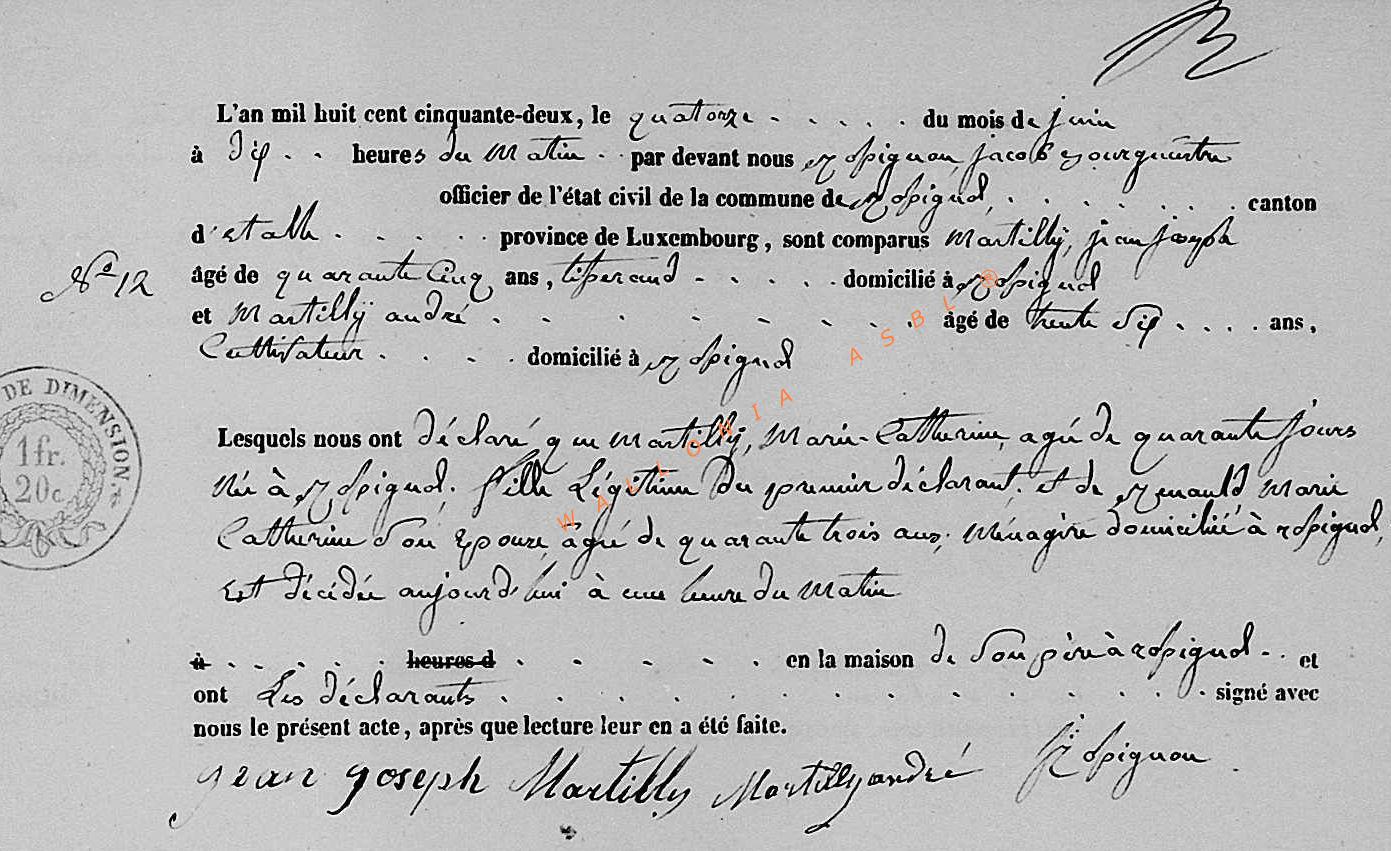 L'an mil huit cent cinquante-deux, le quatorze - . . . . du mois de juin
à dix . . heures du matin . . par devant nous Rossignon, jacob Bourguestre
officier de l'état civil de la commune de Rossignol, . . . . . . . canton
d'etalle . . . . . province de Luxembourg, sont comparus Martilly, jean joseph
N° 12
âgé de quarante cinq ans, tisserand - . . . . domicilié à Rossignol
et Martilly andré . . . . . . . . . âgé de trente six . . . . ans,
Cultivateur . . . . domicilié à Rossignol
DE DIMENSION
1 fr.
20 c.
Lesquels nous ont déclaré que Martilly, Marie-Catherine, agée de quarante jours
née à Rossignol. fille Légitime du premier déclarant. et de Renauld Marie
Catherine son Epouse, âgée de quarante trois ans, Ménagère domiciliée à rossignol,
Est décédée aujourd'hui à une heure du matin
à . . . . . heures d . . . . . en la maison de son père à rossignol . . et
ont Les déclarants . . . . . . . . . . . . . signé avec
nous le présent acte, après que lecture leur en a été faite.
jean joseph Martilly Martilly andré J Rossignon
WALLONIA ASBL ®